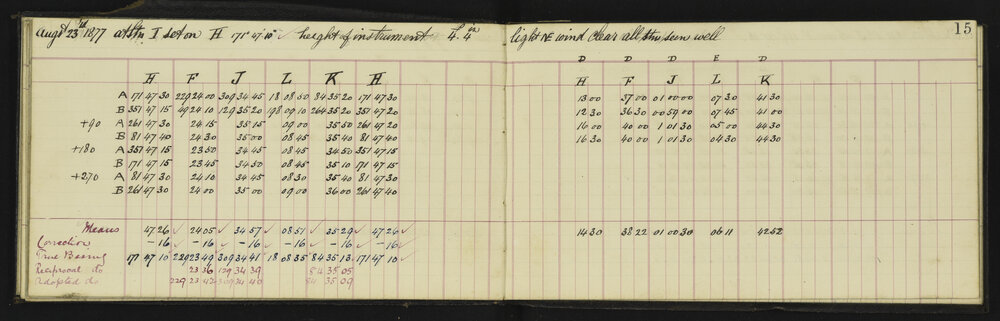 Augst 23rd 1877 at Stn I set on H 171° 47' 10" height of instrument 4ft. 4in light NE wind clear all Stns seen well 15
H F J L K H D H D F D J E L D K
A 171 47 30 229 24 00 309 34 45 18 08 50 84 35 20 171 47 30 13 00 37 00 01 00 00 07 30 41 30
B 351 47 15 49 24 10 129 35 20 198 09 10 264 35 20 351 47 20 12 30 36 30 00 59 00 07 45 41 00
+90 A 261 47 30 24 15 35 15 09 00 35 50 261 47 20 16 00 40 00 1 01 30 05 00 44 30
B 81 47 40 24 30 35 00 08 45 35 40 81 47 40 16 30 40 00 1 01 30 04 30 44 30
+180 A 351 47 15 23 50 34 45 08 45 34 50 351 47 15
B 171 47 15 23 45 34 50 08 45 35 10 171 47 15
+270 A 81 47 30 24 10 34 45 08 30 35 40 81 47 30
B 261 47 30 24 00 35 00 09 00 36 00 261 47 40
Means 47 26 ✓ 24 05 ✓ 34 57 ✓ 08 51 ✓ 35 29 ✓ 47 26 ✓ 14 30 38 22 01 00 30 06 11 42 52
Correction -16 ✓ -16 ✓ -16 ✓ -16 ✓ -16 ✓ -16 ✓
True Bearing 171 47 10 ✓ 229 23 49 ✓ 309 34 41 ✓ 18 08 35 ✓ 84 35 13 ✓ 171 47 10 ✓
Reciprocal do 23 36 129 34 39 84 35 05
Adopted do 229 23 42 309 34 40 84 35 09